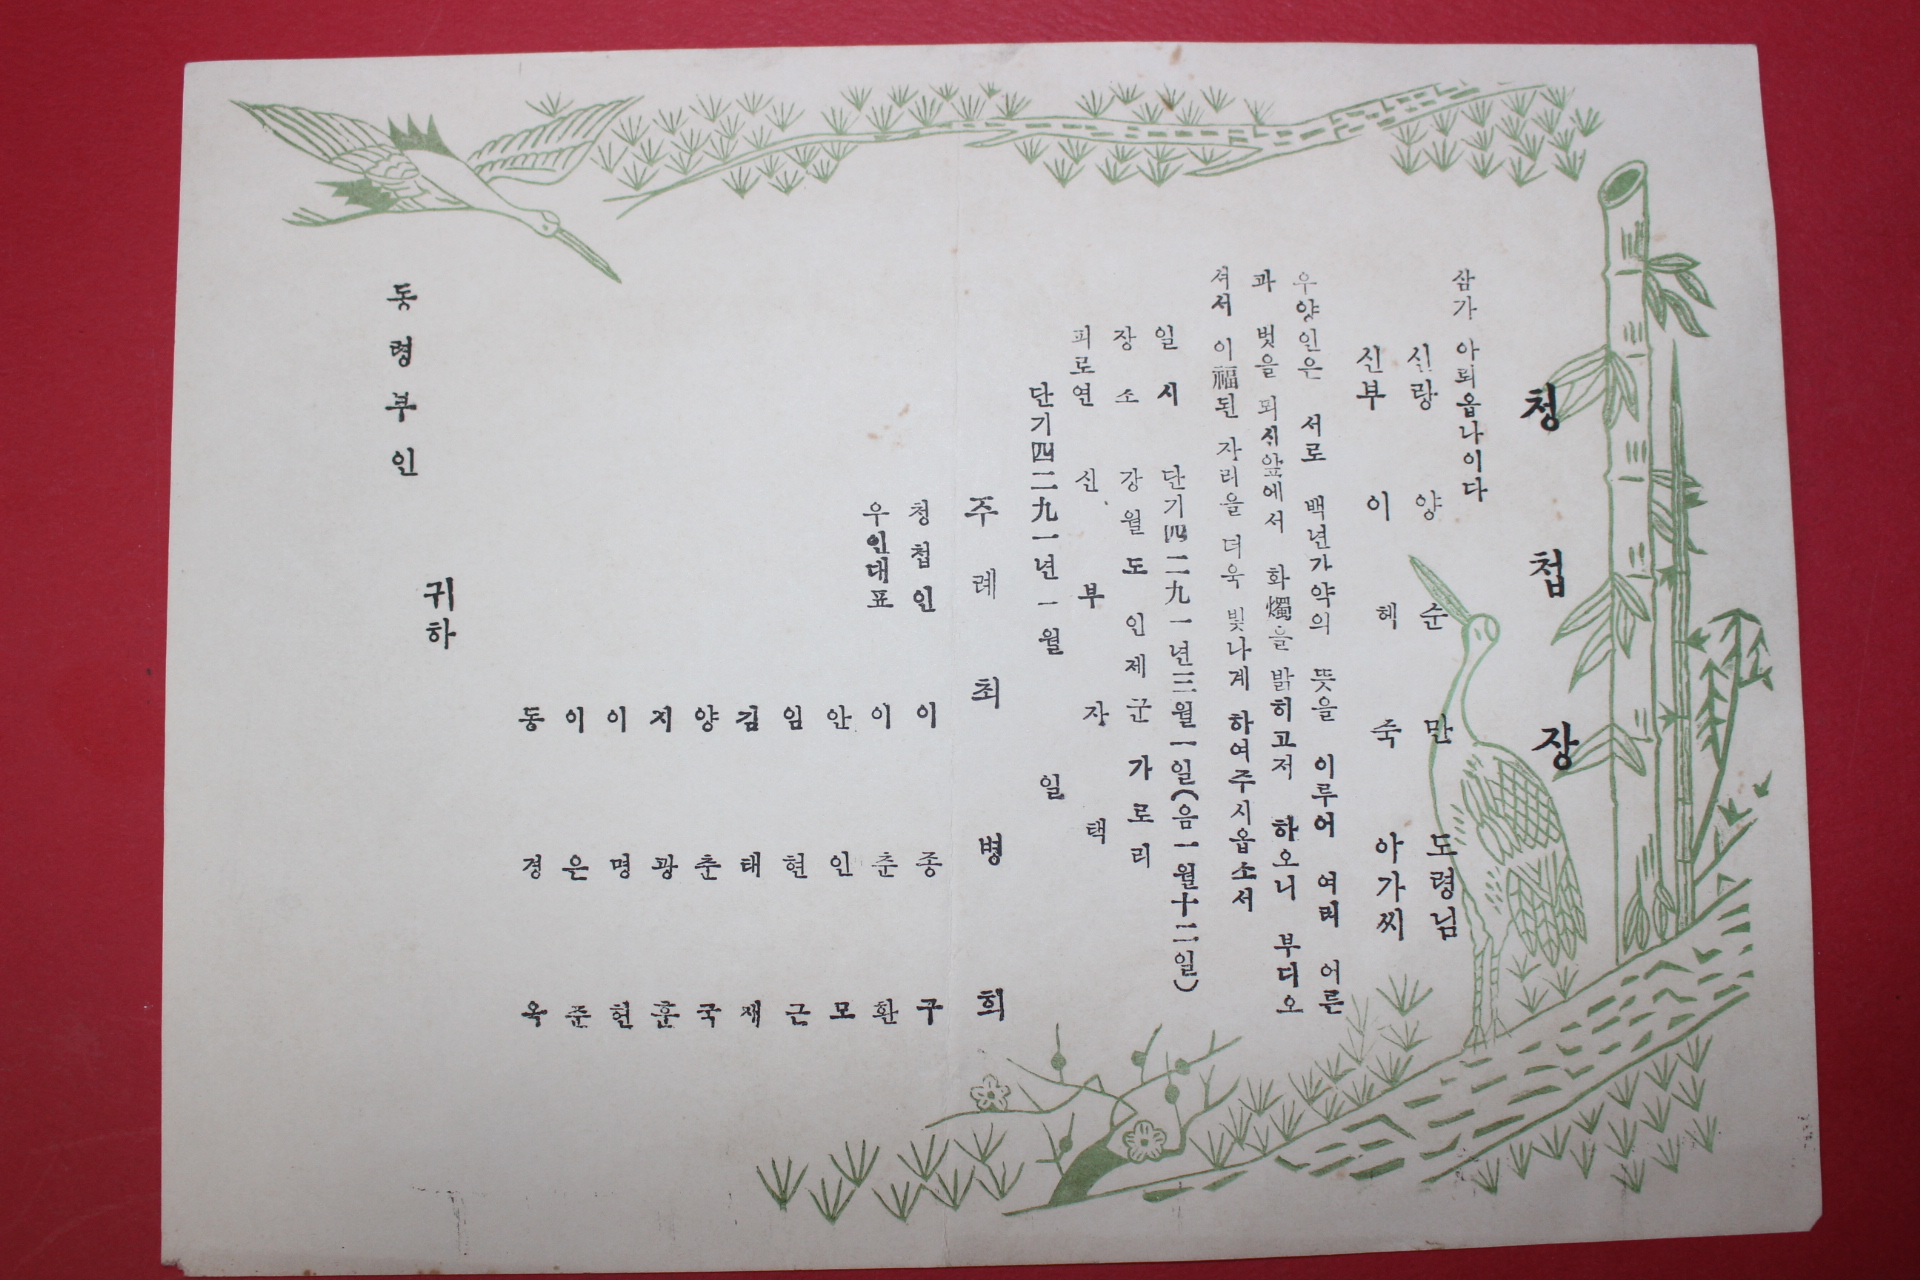 청첩장
삼가 아뢰옵나이다
신랑 양순만 도령님
신부 이혜숙 아가씨
우양인은 서로 백년가약의 뜻을 이루어 여러 어른
과 벗을 뫼신앞에서 화燭을 밝히고저 하오니 부디오
셔서 이福된 자리을 더욱 빛나계 하여주시옵소서
일시 단기四二九一년三월一일(음一월十二일)
장소 강원도 인제군 가로리
피로연 신부 자택
단기四二九一년一월 일
주례 최병희
청첩인 이종구
우인대표 이춘환
안인모
임현근
김태재
양춘국
지광훈
이명헌
이은준
동경옥
동령부인 귀하